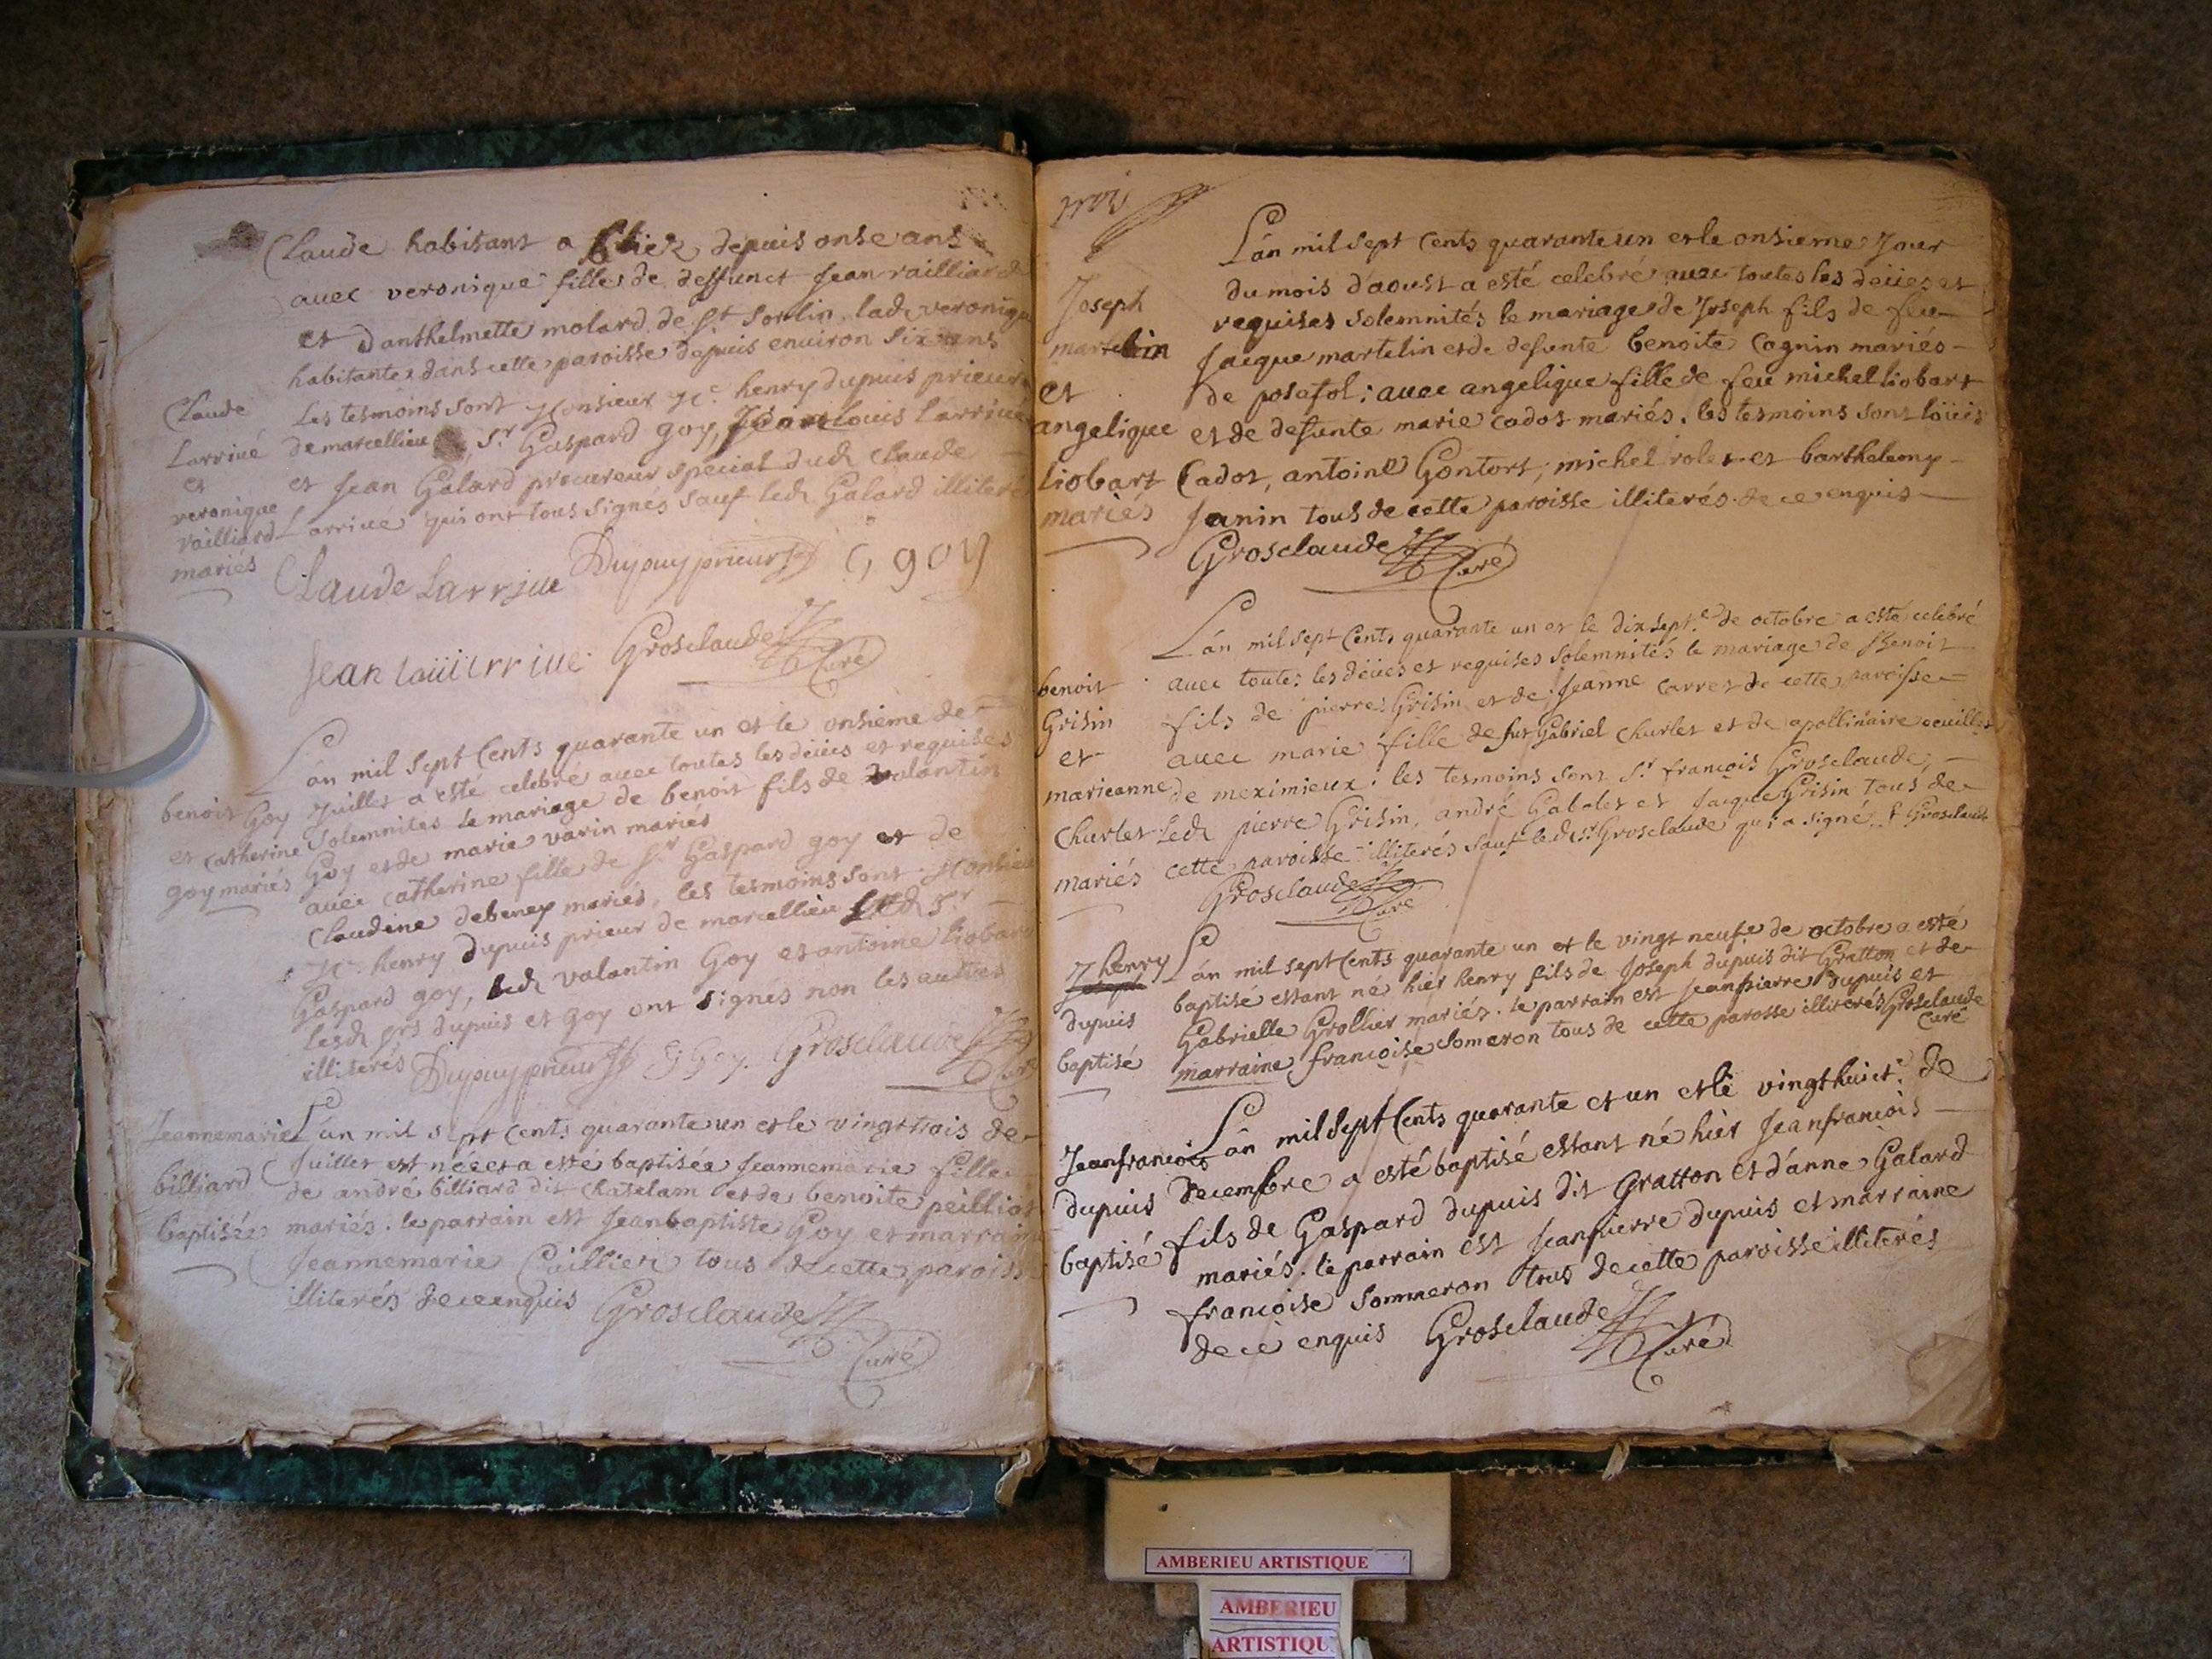 Claude habitant a depuis onse ans
avec veronique fille de deffunct Jean railliard
et danthelmette molard de St Sorlin. lad. veronique
habitante dans cette paroisse depuis environ six ans
Les tesmoins sont Monsieur Me. henry dupuis prieur
de marcellieu Sr Gaspard goy, Jean Louis Larrivé
et Jean Galard procureur special dud. Claude
Larrivé qui ont tous signés sauf led. Galard illiteré
Claude
Larrivé
et
veronique
railliard
mariés
Claude Larrive Dupuy prieur G goy
Jean Grosclaude Curé
Lán mil sept Cents quarante un et le onsieme de
Juillet a esté celebré avec toutes les deües et requises
solemnites le mariage de benoit fils de valantin
Goy et de marie varin mariés
avec catherine fille de Sr Gaspard goy et de
Claudine debeney mariés, les tesmoins sont Monsieur
Me. henry dupuis prieur de marcellieu led. Sr
Gaspard goy, led. valantin Goy et antoine liobard
lesd. srs dupuis et goy ont signés non les autres
illiterés Dupuy prieur G Goy. Grosclaude Curé
benoit Goy
et catherine
goy mariés
Lán mil sept Cents quarante un et le vingt trois de
Juillet est née et a esté baptisée Jeannemarie fille
de andré billiard dit Chatelam et de benoite peilliot
mariés. le parrain est Jeanbaptiste Goy et marraine
Jeannemarie Caillier tous de cette paroisse
illiterés de ce enquis Grosclaude Curé
Jeannemarie
billiard
baptisée
trois
Lán mil sept Cents quarante un et le onsieme Jour
du mois d'aoust a esté celebré avec toutes les deües et
requises solemnités le mariage de Joseph fils de feu
Jacque martelin et de defunte benoite Cognin mariés
de posafol; avec angelique fille de feu michel liobart
et de defunte marie cadot mariés. les tesmoins sont loüis
Cadot, antoine Gontort, michel rolet et barthelemy
Janin tous de cette paroisse illiterés de ce enquis
Grosclaude Curé
Joseph
martelin
et
angelique
liobart
mariés
Lán mil sept Cents quarante un et le dix sept.e de octobre a esté celebré
avec toutes les deües et requises solemnités le mariage de Benoit
fils de pierre Grisin et de Jeanne Carret de cette paroisse
avec marie fille de fut Gabriel Charlet et de apollinaire
de meximieux. les tesmoins sont Sr françois Grosclaude,
led. pierre Grisin, andré Gabalet et Jacque Grisin tous de
cette paroisse illiterés sauf led. Sr. Grosclaude qui a signé. F Grosclaude
Grosclaude Curé
benoit
Grisin
et
marieanne
Charlet
mariés
Lán mil sept Cents quarante un et le vingt neuf.e de octobre a esté
baptisé estant né hier henry fils de Joseph dupuis dit Gratton et de
Gabrielle Grollier mariés. le parrain est Jeanpierre dupuis et
marraine françoise Someron tous de cette parosse illiterés Grosclaude
Curé
henry
dupuis
baptisé
Lán mil sept Cents quarante et un et le vingthuict.e de
decembre a esté baptisé estant né hier Jeanfrancois
fils de Gaspard dupuis dit Gratton et d'anne Galard
mariés. le parrain est Jeanpierre dupuis et marraine
francoise Sommeron tous de cette paroisse illiterés
de ce enquis Grosclaude Curé
Jeanfrancois
dupuis
baptisé
AMBERIEU ARTISTIQUE
AMBERIEU
ARTISTIQU